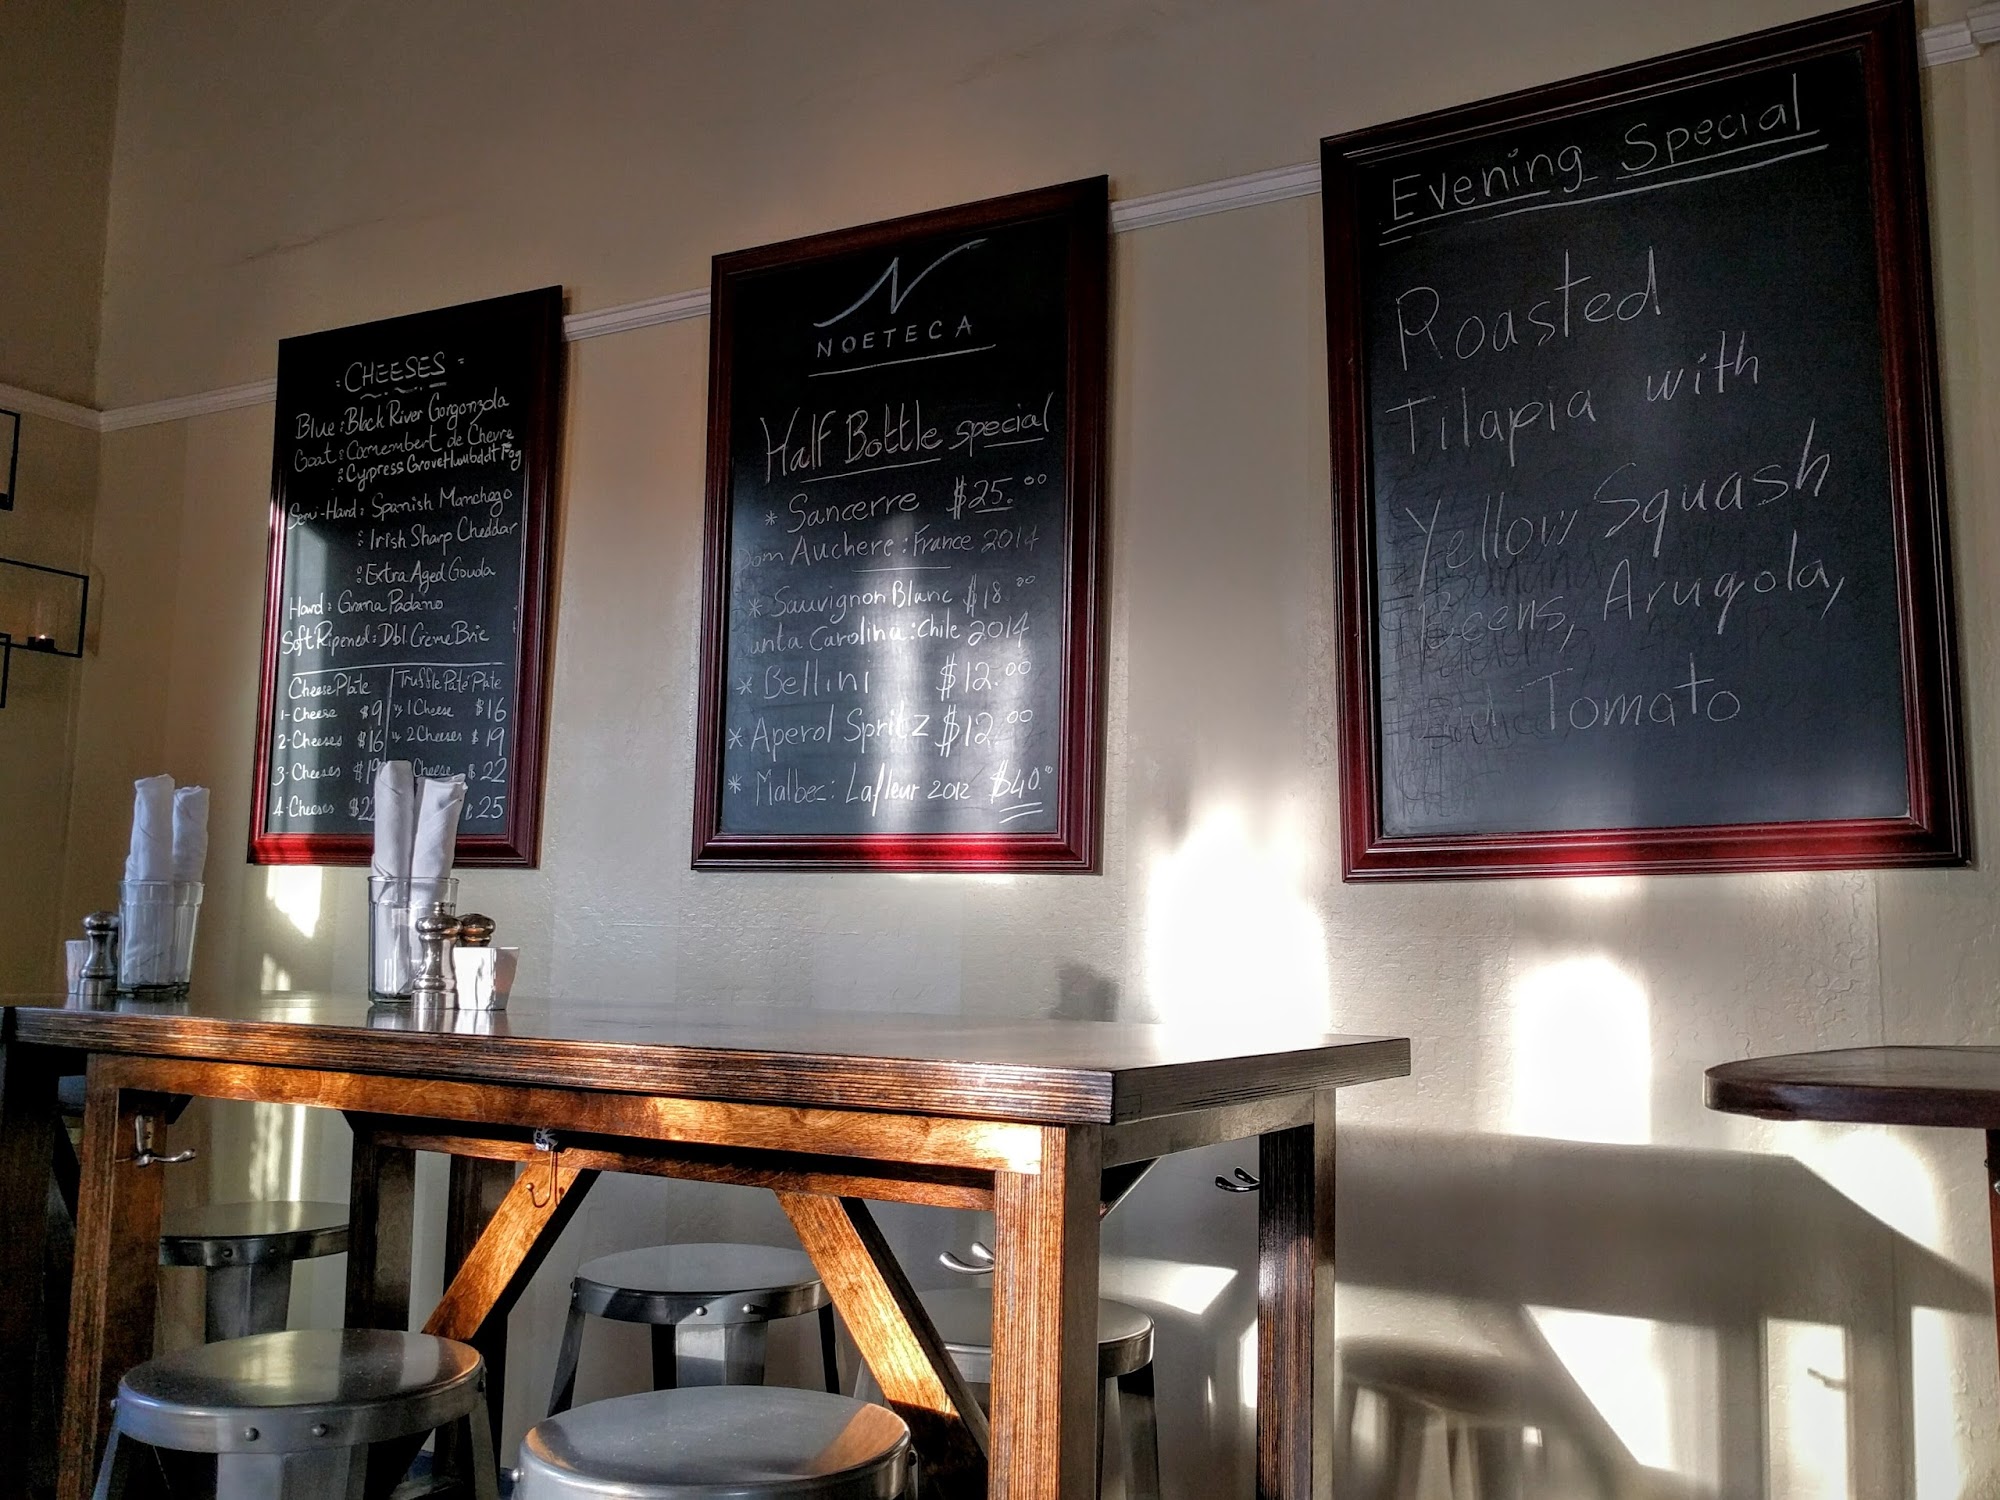 CHEESES
Blue : Black River Gorgonzola
Goat : Camembert de Chevre
: Cypress Grove Humboldt Fog
Semi-Hard : Spanish Manchego
: Irish Sharp Cheddar
: Extra Aged Gouda
Hard : Grana Padano
Soft Ripened : Dbl Creme Brie
Cheese Plate
1-Cheese $9
2-Cheeses $16
3-Cheeses
4-Cheeses
Truffle Paté Plate
w/ 1 Cheese $16
w/ 2 Cheeses $19
Cheese $22
$25
N
NOETECA
Half Bottle special
* Sancerre $25.00
Dom Auchere : France 2014
* Sauvignon Blanc $18.00
Carolina : Chile 2014
* Bellini $12.00
* Aperol Spritz $12.00
* Malbec : Lafleur 2012 $40.00
Evening Special
Roasted
Tilapia with
Yellow Squash
Arugola,
Tomato